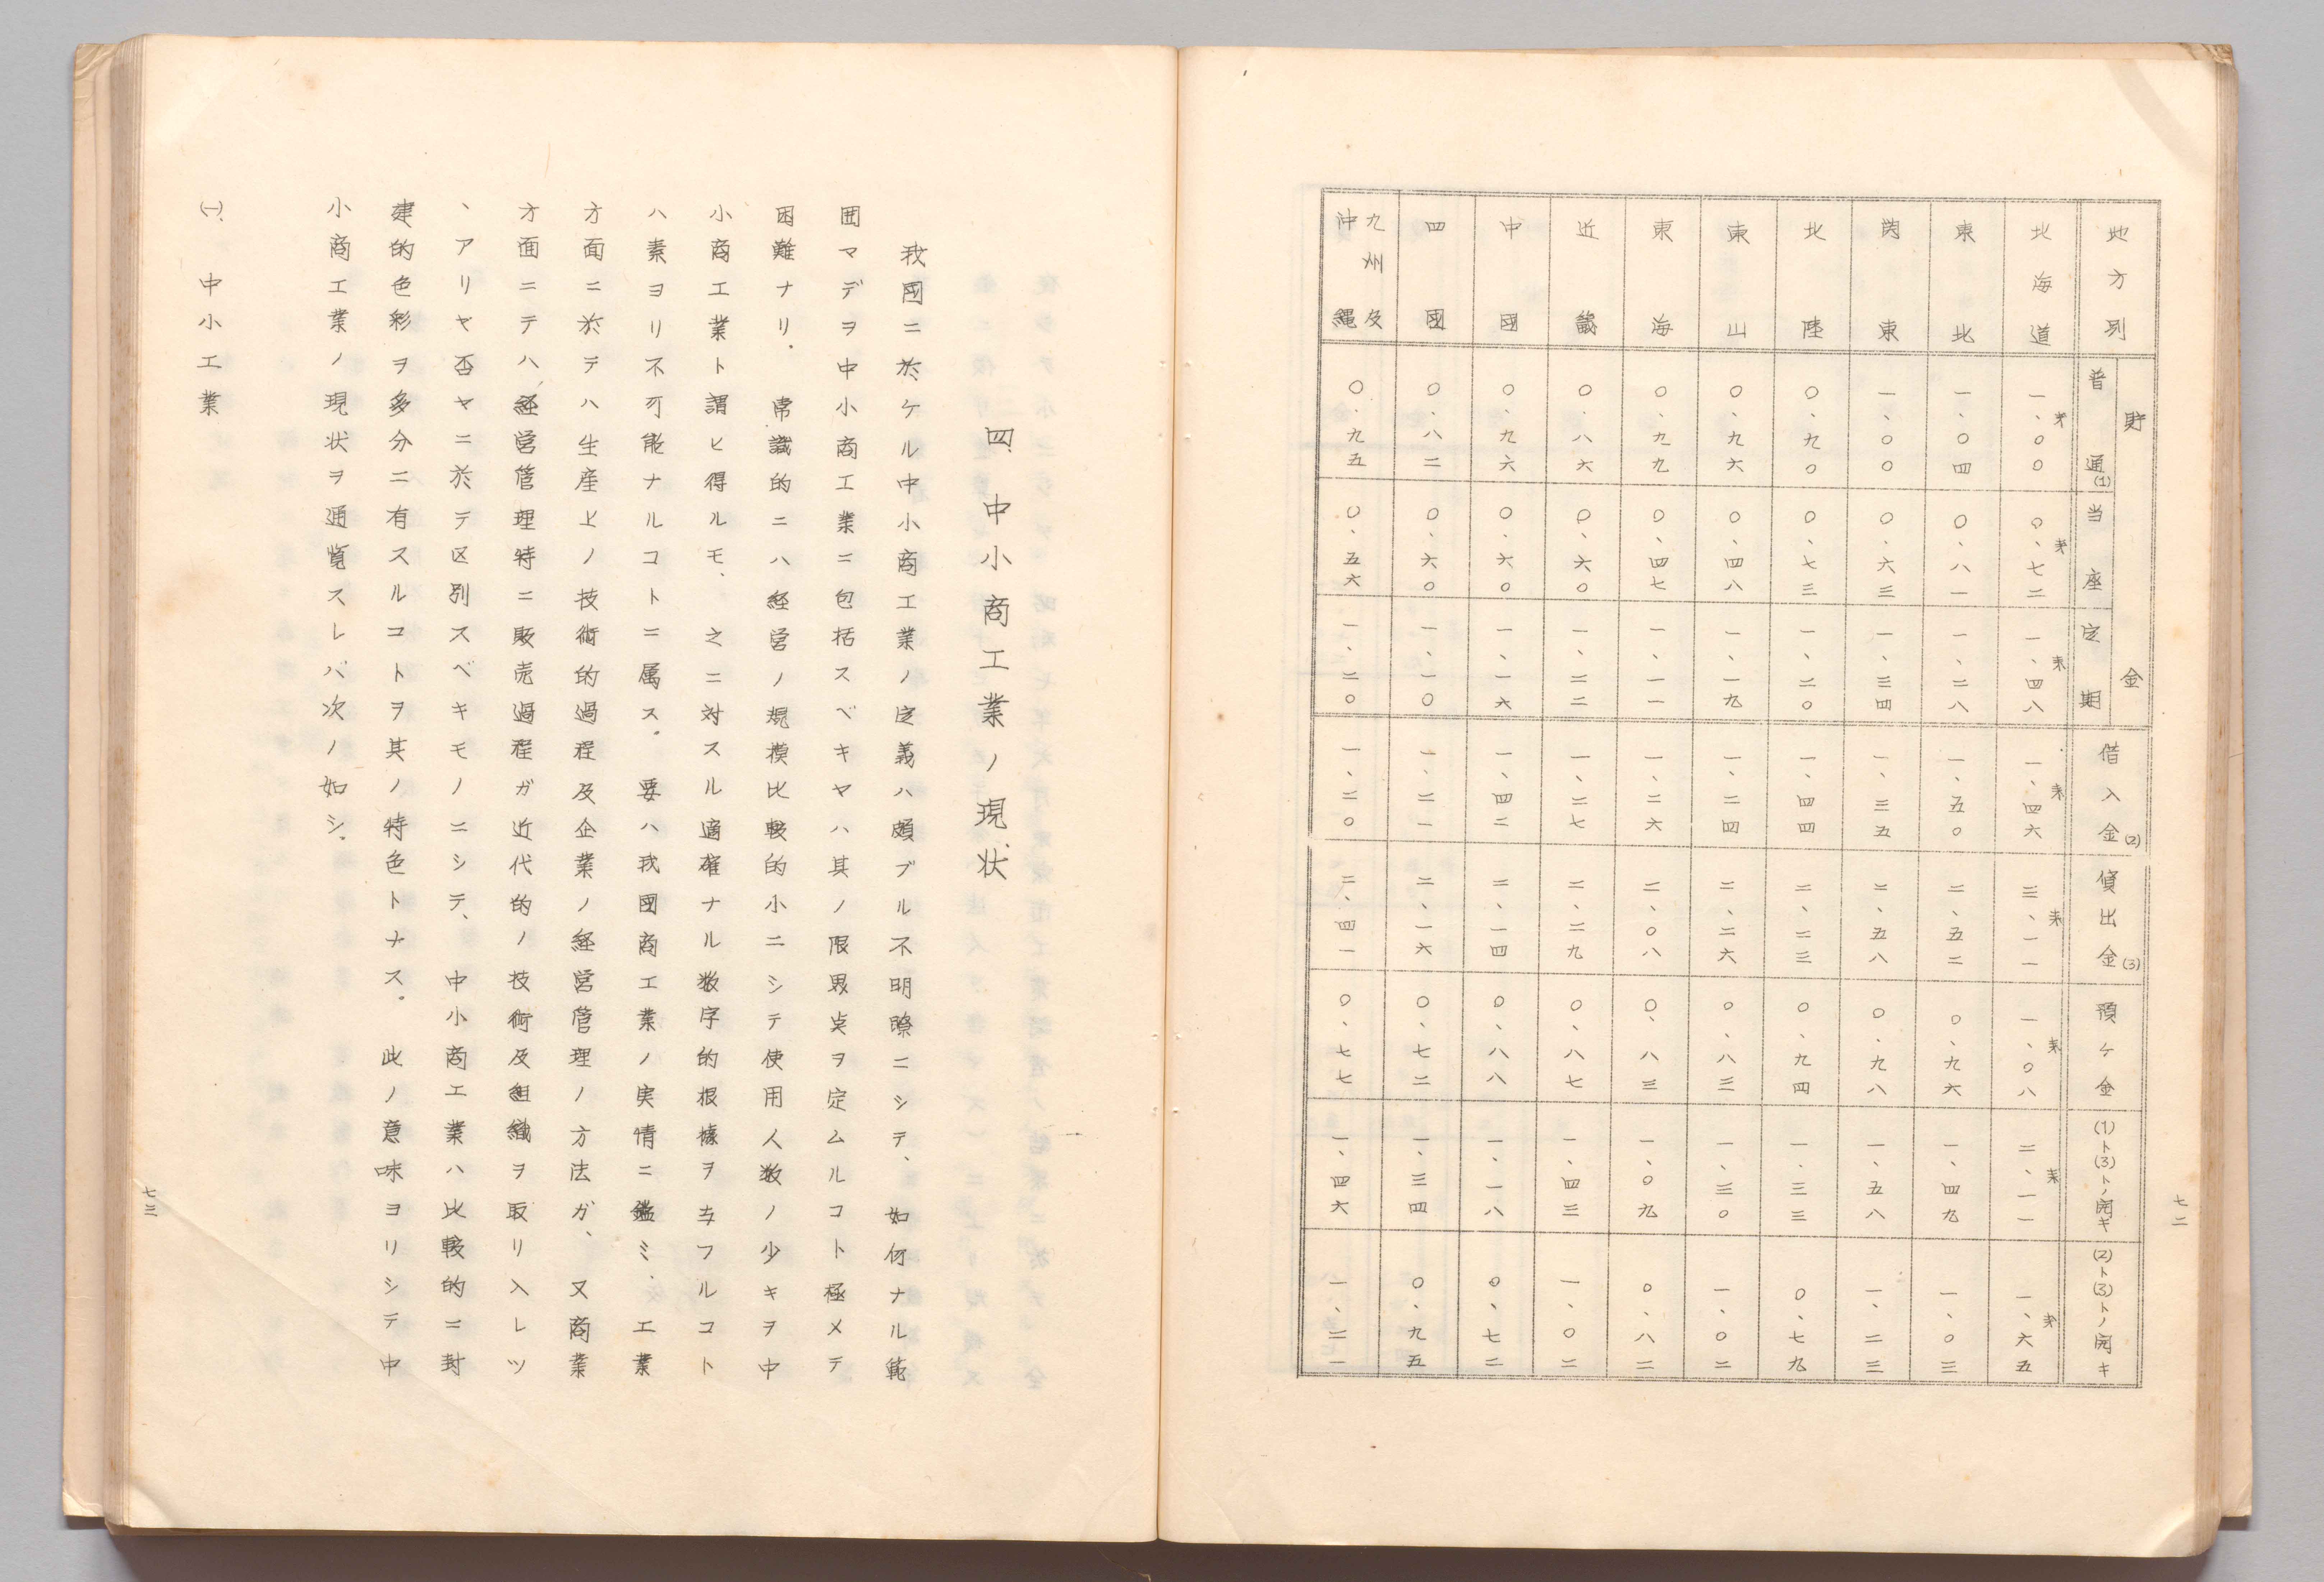 七二
地方別 貯金 普通(1) 当座 定期 借入金(2) 貸出金(3) 預ケ金 (1)ト(3)トノ開キ (2)ト(3)トノ開キ
北海道 一、〇〇 〇、七二 一、四八 一、四六 三、一一 一、〇八 二、一一 一、六五
東北 一、〇四 〇、八一 一、二八 一、五〇 二、五二 〇、九六 一、四九 一、〇三
関東 一、〇〇 〇、六三 一、三四 一、三五 二、五八 〇、九八 一、五八 一、二三
北陸 〇、九〇 〇、七三 一、二〇 一、四四 二、二三 〇、九四 一、三三 〇、七九
東山 〇、九六 〇、四八 一、一九 一、二四 二、二六 〇、八三 一、三〇 一、〇二
東海 〇、九九 〇、四七 一、一一 一、二六 二、〇八 〇、八三 一、〇九 〇、八二
近畿 〇、八六 〇、六〇 一、二二 一、二七 二、二九 〇、八七 一、四三 一、〇二
中國 〇、九六 〇、六〇 一、一六 一、四二 二、一四 〇、八八 一、一八 〇、七二
四國 〇、八二 〇、六〇 一、一〇 一、二一 二、一六 〇、七二 一、三四 〇、九五
九州及沖縄 〇、九五 〇、五六 一、二〇 一、二〇 二、四一 〇、七七 一、四六 一、二一
四、中小商工業ノ現状
我國ニ於ケル中小商工業ノ定義ハ頗ブル不明瞭ニシテ、如何ナル範
囲マデヲ中小商工業ニ包括スベキヤハ其ノ限界点ヲ定ムルコト極メテ
困難ナリ。常識的ニハ経営ノ規模比較的小ニシテ使用人数ノ少キヲ中
小商工業ト謂ヒ得ルモ、之ニ対スル適確ナル数字的根據ヲ与フルコト
ハ素ヨリ不可能ナルコトニ属ス。要ハ我國商工業ノ実情ニ鑑ミ、工業
方面ニ於テハ生産上ノ技術的過程及企業ノ経営管理ノ方法ガ、又商業
方面ニテハ経営管理特ニ販売過程ガ近代的ノ技術及組織ヲ取リ入レツ
ヽアリヤ否ヤニ於テ区別スベキモノニシテ、中小商工業ハ比較的ニ封
建的色彩ヲ多分ニ有スルコトヲ其ノ特色トナス。此ノ意味ヨリシテ中
小商工業ノ現状ヲ通覧スレバ次ノ如シ。
㈠、中小工業
七三